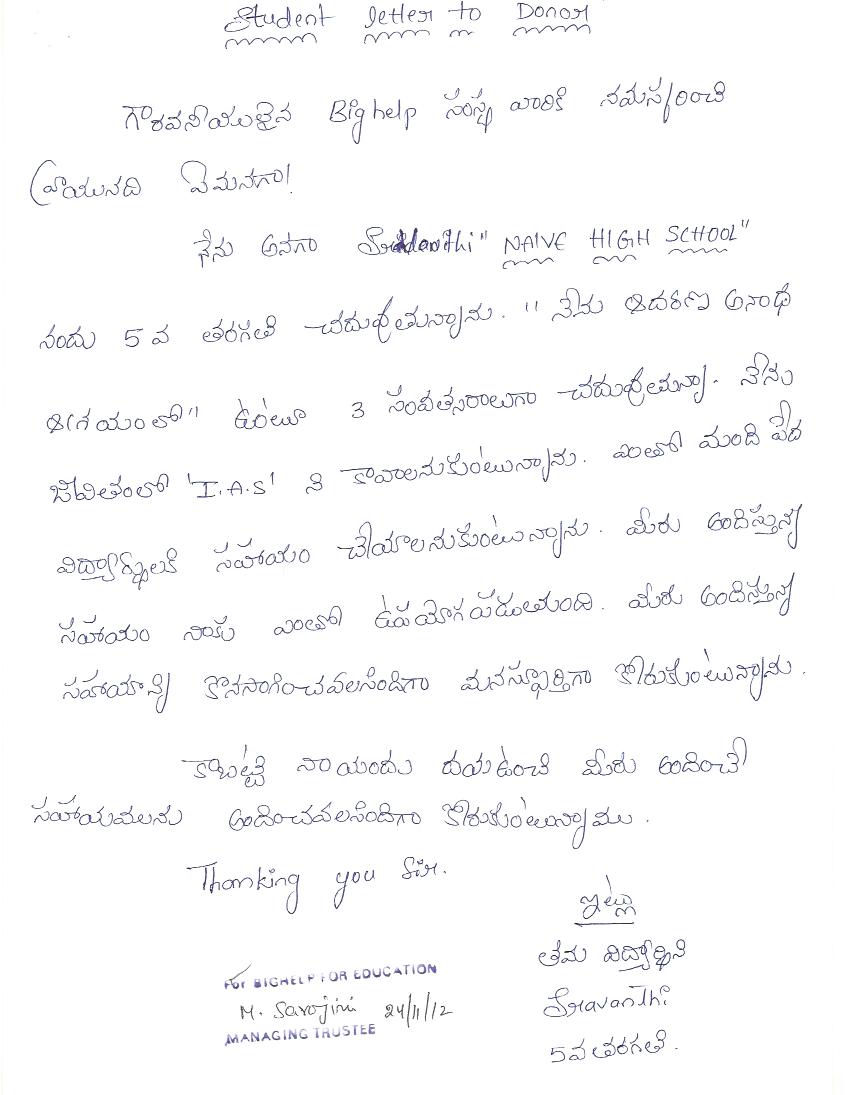 Student letter to Donor
గౌరవనీయులైన Big help సంస్థ వారికి నమస్కరించి
వ్రాయునది ఏమనగా!
నేను అనగా "NAIVE HIGH SCHOOL"
నందు 5 వ తరగతి చదువుతున్నాను. "నేను ఆదరణ అనాధ
ఆశ్రయంలో" ఉంటూ 3 సంవత్సరాలుగా చదువుతున్నా. నేను
జీవితంలో 'I.A.S' ని కావాలనుకుంటున్నాను. ఎంతో మంది పేద
విద్యార్థులకి సహాయం చేయాలనుకుంటున్నాను. మీరు అందిస్తున్న
సహాయం నాకు ఎంతో ఉపయోగపడుతుంది. మీరు అందిస్తున్న
సహాయాన్ని కొనసాగించవలసిందిగా మనస్ఫూర్తిగా కోరుకుంటున్నాను.
కాబట్టి నా యందు దయఉంచి మీరు అందించే
సహాయమును అందించవలసిందిగా కోరుకుంటున్నాము.
Thanking you Sir.
ఇట్లు
తమ విద్యార్థిని
Sravanthi
5వ తరగతి.
For BIGHELP FOR EDUCATION
M. Sarojini 24/11/12
MANAGING TRUSTEE